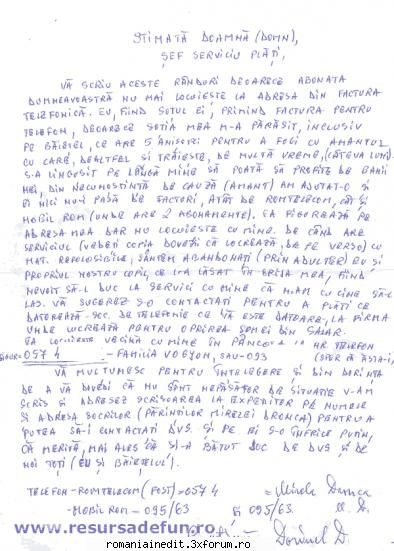 STIMATĂ DOAMNĂ (DOMN),
ȘEF SERVICIU PLĂȚI,
VĂ SCRIU ACESTE RÂNDURI DEOARECE ABONATA
DUMNEAVOASTRĂ NU MAI LOCUIEȘTE LA ADRESA DIN FACTURA
TELEFONICĂ. EU, FIIND SOȚUL EI, PRIMIND FACTURA PENTRU
TELEFON, DEOARECE SOȚIA MEA M-A PĂRĂSIT, INCLUSIV
PE BĂIEȚEL, CE ARE 5 ANIȘORI PENTRU A FUGI CU AMANTUL
CU CARE, DEALTFEL ȘI TRĂIEȘTE, DE MULTĂ VREME, (CÂTEVA LUNI).
S-A LINGUȘIT PE LÂNGĂ MINE SĂ POATĂ SĂ PROFITE DE BANII
MEI, DIN NECUNOȘTINȚĂ DE CAUZĂ (AMANT) AM AJUTAT-O ȘI
EI NICI NU-I PASĂ DE FACTORI, ATÂT DE ROMTELECOM, CÂT ȘI
MOBIL ROM (UNDE ARE 2 ABONAMENTE). EA FIGUREAZĂ PE
ADRESA MEA DAR NU LOCUIEȘTE CU MINE. DE CÂND ARE
SERVICIUL (VEDEȚI COPIA DOVEZII CĂ LUCREAZĂ, DE PE VERSO) CU
MAT. REFOLOSIBILE, SÂNTEM ABANDONAȚI (PRIN ADULTER) EU ȘI
PROPRIUL NOSTRU COPIL, CE L-A LĂSAT ÎN GRIJA MEA, FIIND
NEVOIT SĂ-L DUC LA SERVICI CU MINE CĂ N-AM CU CINE SĂ-L
LAS. VĂ SUGEREZ S-O CONTACTAȚI PENTRU A PLĂTI CE
DATOREAZĂ SOC. DE TELEFONIE CE VĂ ESTE DATOARE, LA FIRMA
UNDE LUCREAZĂ PENTRU OPRIREA SUMEI DIN SALAR.
EA LOCUIEȘTE VECINĂ CU MINE ÎN PÂNCOTA LA NR. TELEFON
0574 - FAMILIA VOGYON, SAU - 093 (SPER CĂ ĂSTA-I)
VĂ MULȚUMESC PENTRU ÎNȚELEGERE ȘI DIN DORINȚA
DE A VĂ DOVEDI CĂ NU SÂNT NEPĂSĂTOR DE SITUAȚIE V-AM
SCRIS ȘI ADRESEZ SCRISOAREA LA EXPEDITOR PE NUMELE
ȘI ADRESA SOCRILOR (PĂRINȚILOR MIRELEI DRONCA) PENTRU A
PUTEA SĂ-I CONTACTAȚI DVS. ȘI PE EI S-O ÎNFRICE PUȚIN,
CĂ MERITĂ, MAI ALES CĂ ȘI-A BĂTUT JOC DE DVS ȘI DE
NOI TOȚI (EU ȘI BĂIEȚELUL).
TELEFON - ROMTELECOM (POST) = 0574 = Mirela Dronca
- MOBIL ROM - 095/63 ȘI 095/63.
www.resursadefun.ro
romaniainedit.3xforum.ro